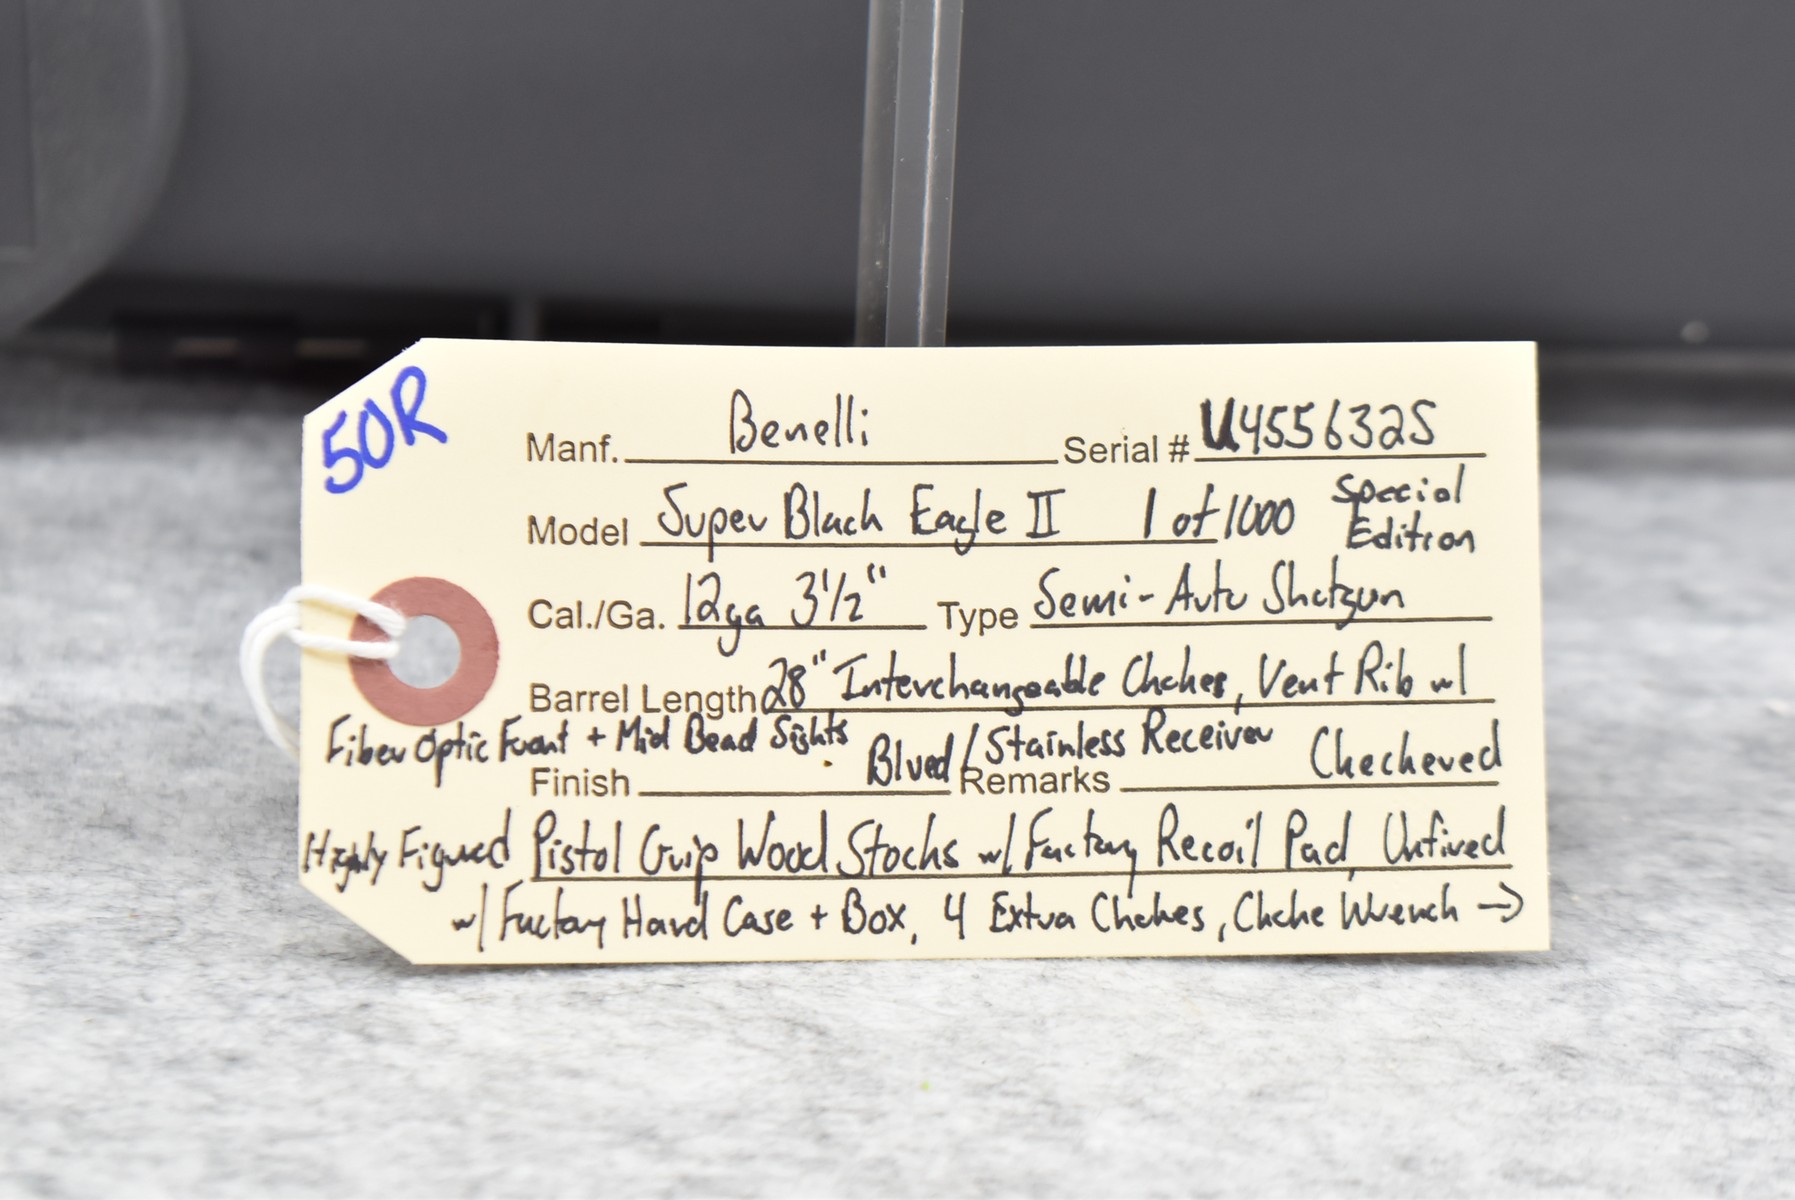 50R
Manf. Benelli Serial # U455632S
Model Super Black Eagle II 1 of 1000 Special Edition
Cal./Ga. 12ga 3 1/2" Type Semi-Auto Shotgun
Barrel Length 28" Interchangeable Chokes, Vent Rib w/
Fiber Optic Front + Mid Bead Sights
Finish Blued/Stainless Receiver Remarks Checkered
Highly Figured Pistol Grip Wood Stocks w/ Factory Recoil Pad, Unfired
w/ Factory Hard Case + Box, 4 Extra Chokes, Choke Wrench →